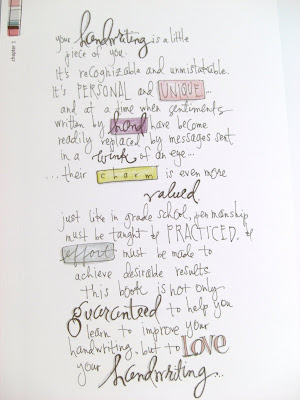 chapter 1
your handwriting is a little
piece of you.
it's recognizable and unmistakable.
it's PERSONAL and UNIQUE...
and at a time when sentiments
written by hand have become
readily replaced by messages sent
in a wink of an eye...
...their charm is even more
valued.
just like in grade school, penmanship
must be taught & PRACTICED. &
effort must be made to
achieve desirable results.
this book is not only
guaranteed to help you
learn to improve your
handwriting, but to LOVE
your handwriting...